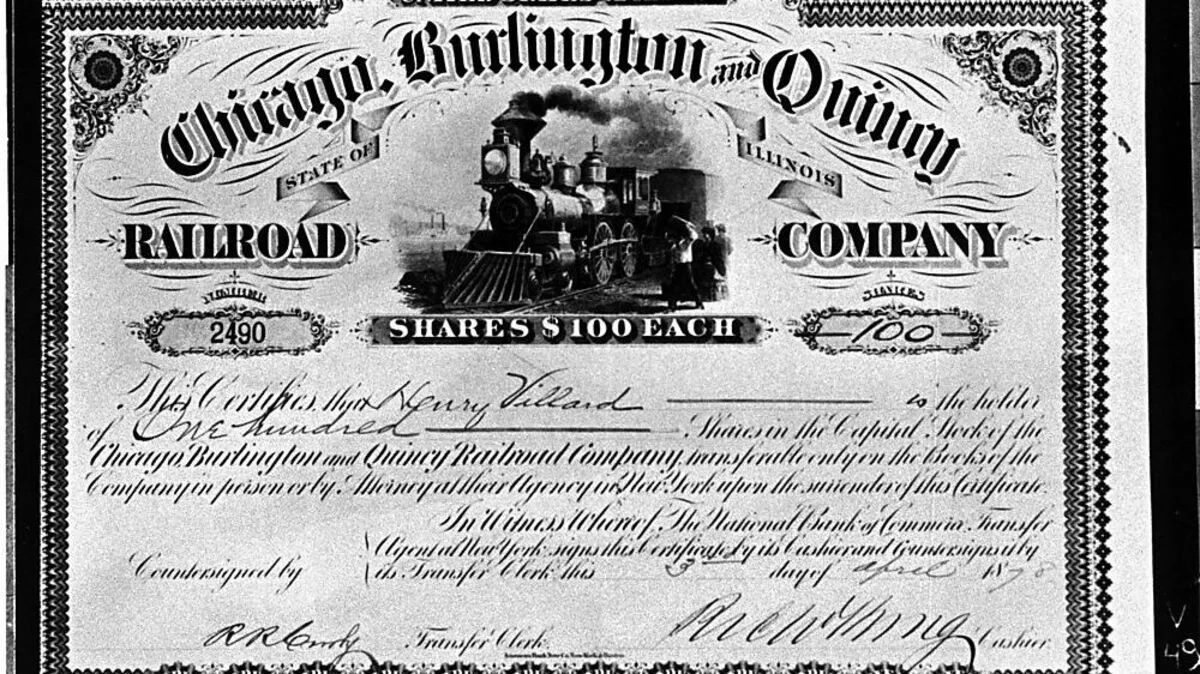 Chicago, Burlington and Quincy
STATE OF ILLINOIS
RAILROAD COMPANY
NUMBER SHARES
2490 100
SHARES $100 EACH
This Certifies that Henry Villard is the holder
of One hundred Shares in the Capital Stock of the
Chicago, Burlington and Quincy Railroad Company, transferable only on the Books of the
Company in person or by Attorney at their Agency in New York upon the surrender of this Certificate.
In Witness Whereof, The National Bank of Commerce Transfer
Agent at New York signs this Certificate by its Cashier and Countersigns it by
Countersigned by its Transfer Clerk this 3rd day of april 1878
Transfer Clerk Cashier
V
49